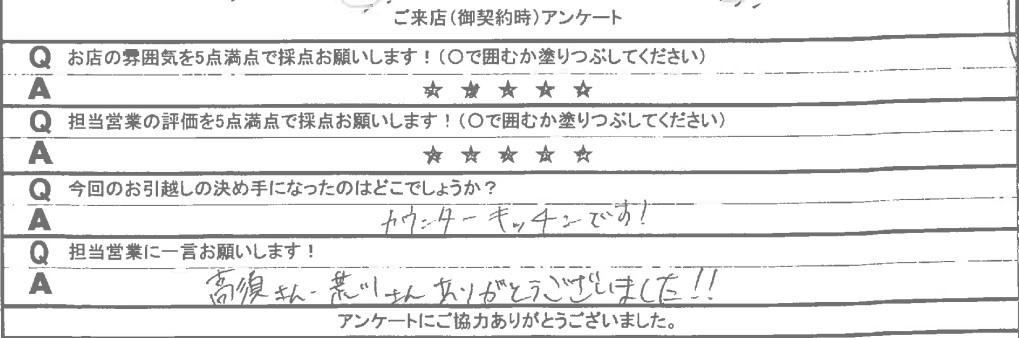 ご来店(御契約時)アンケート
Q お店の雰囲気を5点満点で採点お願いします!(〇で囲むか塗りつぶしてください)
A ☆ ☆ ☆ ☆ ☆
Q 担当営業の評価を5点満点で採点お願いします!(〇で囲むか塗りつぶしてください)
A ☆ ☆ ☆ ☆ ☆
Q 今回のお引越しの決め手になったのはどこでしょうか?
A カウンターキッチンです!
Q 担当営業に一言お願いします!
A 高須さん・荒川さんありがとうございました!!
アンケートにご協力ありがとうございました。